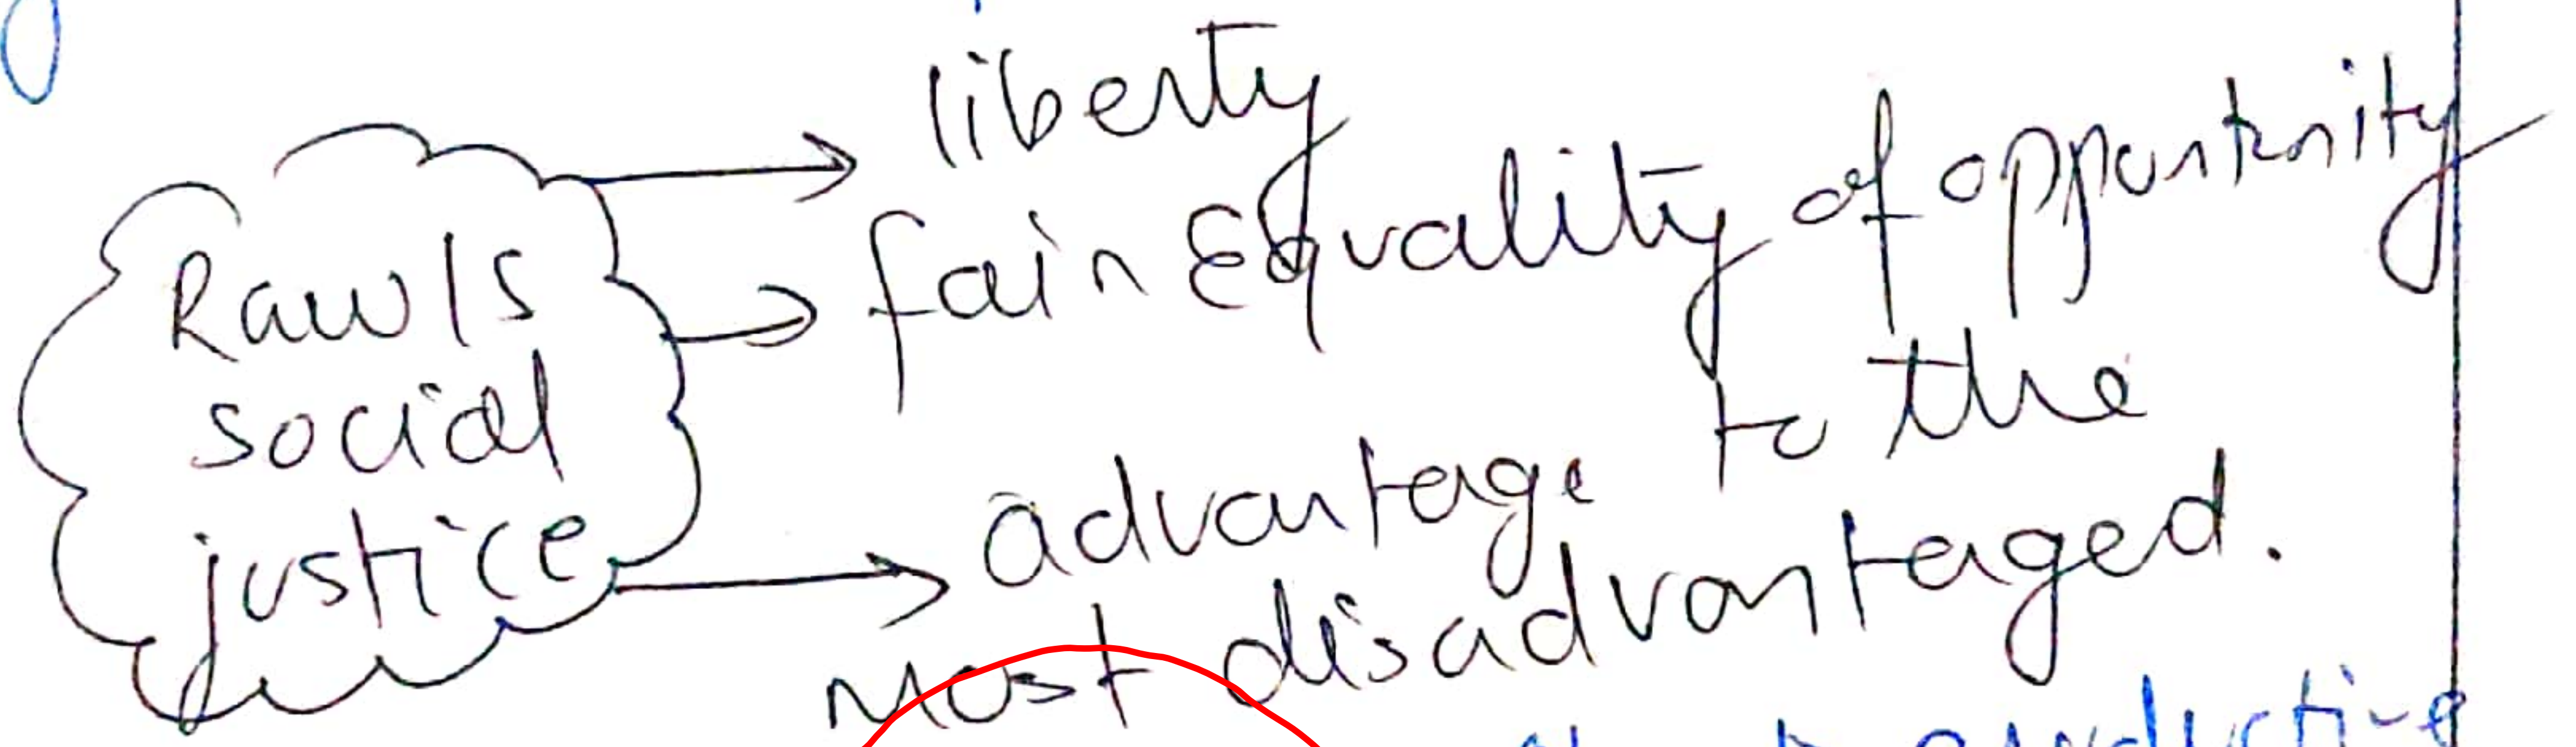 liberty
Rawls
social
justice
fair Equality of opportunity
advantage to the
most disadvantaged.